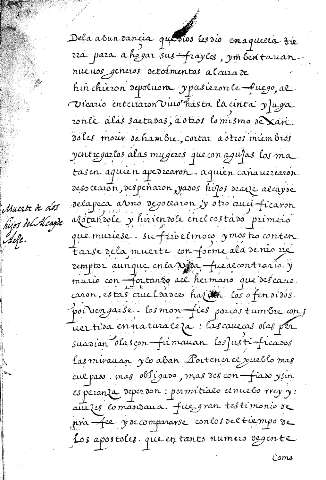 De la abundancia que dios les dio en aquella tie
rra para ahogar sus frayles, y mbentauan
nueuos generos de tormentos al cura de
hinchieron de poluora y pusieronle fuego, al
Vicario enterraron Viuo hasta la cinta y juga
ronle a las saetadas, a otros lo mismo dexan
doles morir de hambre, cortar a otros miembros
y entregarlos a las mugeres que con agujas los ma
tasen a quien apedrearon, a quien acañauerearon
desollaron, despeñaron, y a dos hijos de arze alcayde
de la peça a uno degollaron y otro crucificaron
açotandole y hiriendole en el costado primero
que muriese. sufriolo el moço y mostro conten
tarse de la muerte conforme a la de nro re
demptor aunque en la vida fue al contrario, y
murio confortando al hermano que descabe
çaron, estas crueldades hazian los ofendidos
por vengarse. los monfies por costumbre con
vertida en naturaleza: las cabeças o las per
suadian o las confirmauan los justificados
las mirauan y loaban
mas obligado, mas desconfiado y sin
esperança de perdon: permitialo el nueuo rrey y
a vezes lo mandaua. fue gran testimonio de
nra fee y de compararse con los del tiempo de
los apostoles. que en tanto numero de gente
Como
Muerte de dos
hijos del Alcayde